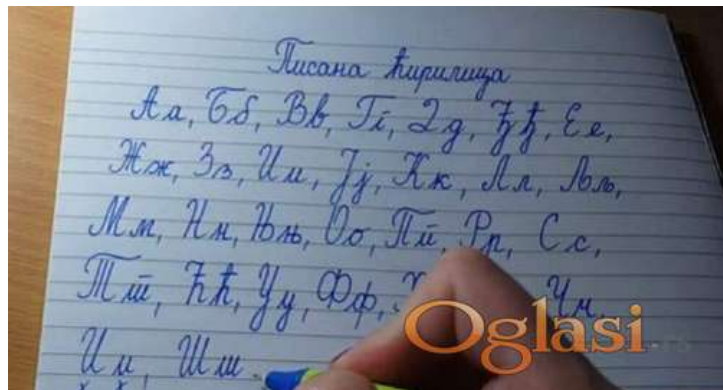 Писана ћирилица
Аа, Бб, Вв, Гг, Дд, Ђђ, Ее,
Жж, Зз, Ии, Јј, Кк, Лл, Љљ,
Мм, Нн, Њњ, Оо, Пп, Рр, Сс,
Тт, Ћћ, Уу, Фф, Чч,
Џџ, Шш
Oglasi.rs